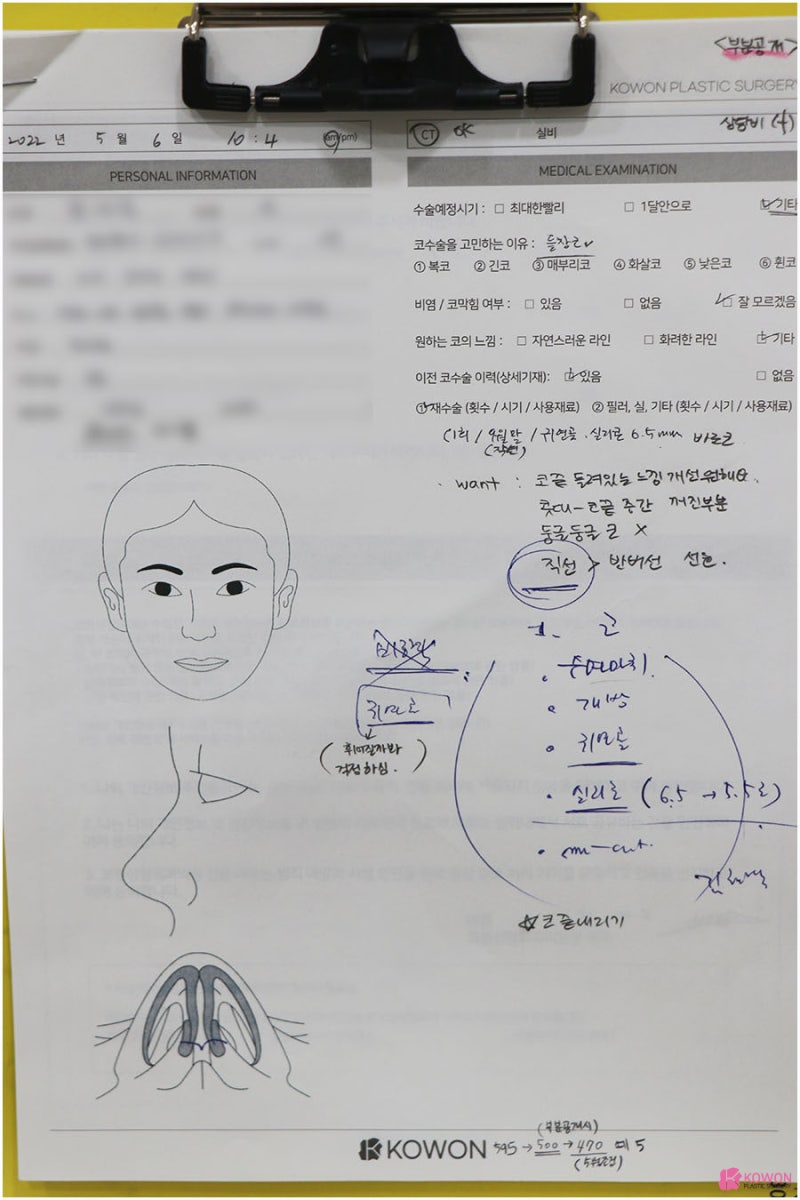 <부분공개>
KOWON PLASTIC SURGERY
상담비 (+)
2022 년 5 월 6 일 10 : 4 (am/pm)
CT OK 실비
PERSONAL INFORMATION
MEDICAL EXAMINATION
수술예정시기 : □ 최대한빨리 □ 1달안으로 □ 기타
코수술을 고민하는 이유 : 들창코
① 복코 ② 긴코 ③ 매부리코 ④ 화살코 ⑤ 낮은코 ⑥ 휜코
비염 / 코막힘 여부 : □ 있음 □ 없음 □ 잘 모르겠음
원하는 코의 느낌 : □ 자연스러운 라인 □ 화려한 라인 □ 기타
이전 코수술 이력(상세기재): □ 있음 □ 없음
① 재수술 (횟수 / 시기 / 사용재료) ② 필러, 실, 기타 (횟수 / 시기 / 사용재료)
(1회 / 9월말 / 귀연골, 실리콘 6.5mm 바르코
(작년)
want : 코끝 들려있는 느낌 개선원해요.
콧대-코끝 중간 꺼진부분
둥글둥글 코 X
직선 > 반버선 선호.
1. 코
개방
귀연골
귀연골
실리콘 (6.5 → 5.5로)
걱정하심.
☆코끝내리기
(부분공개시)
KOWON 595 → 500 → 470
KOWON
PLASTIC SURGERY